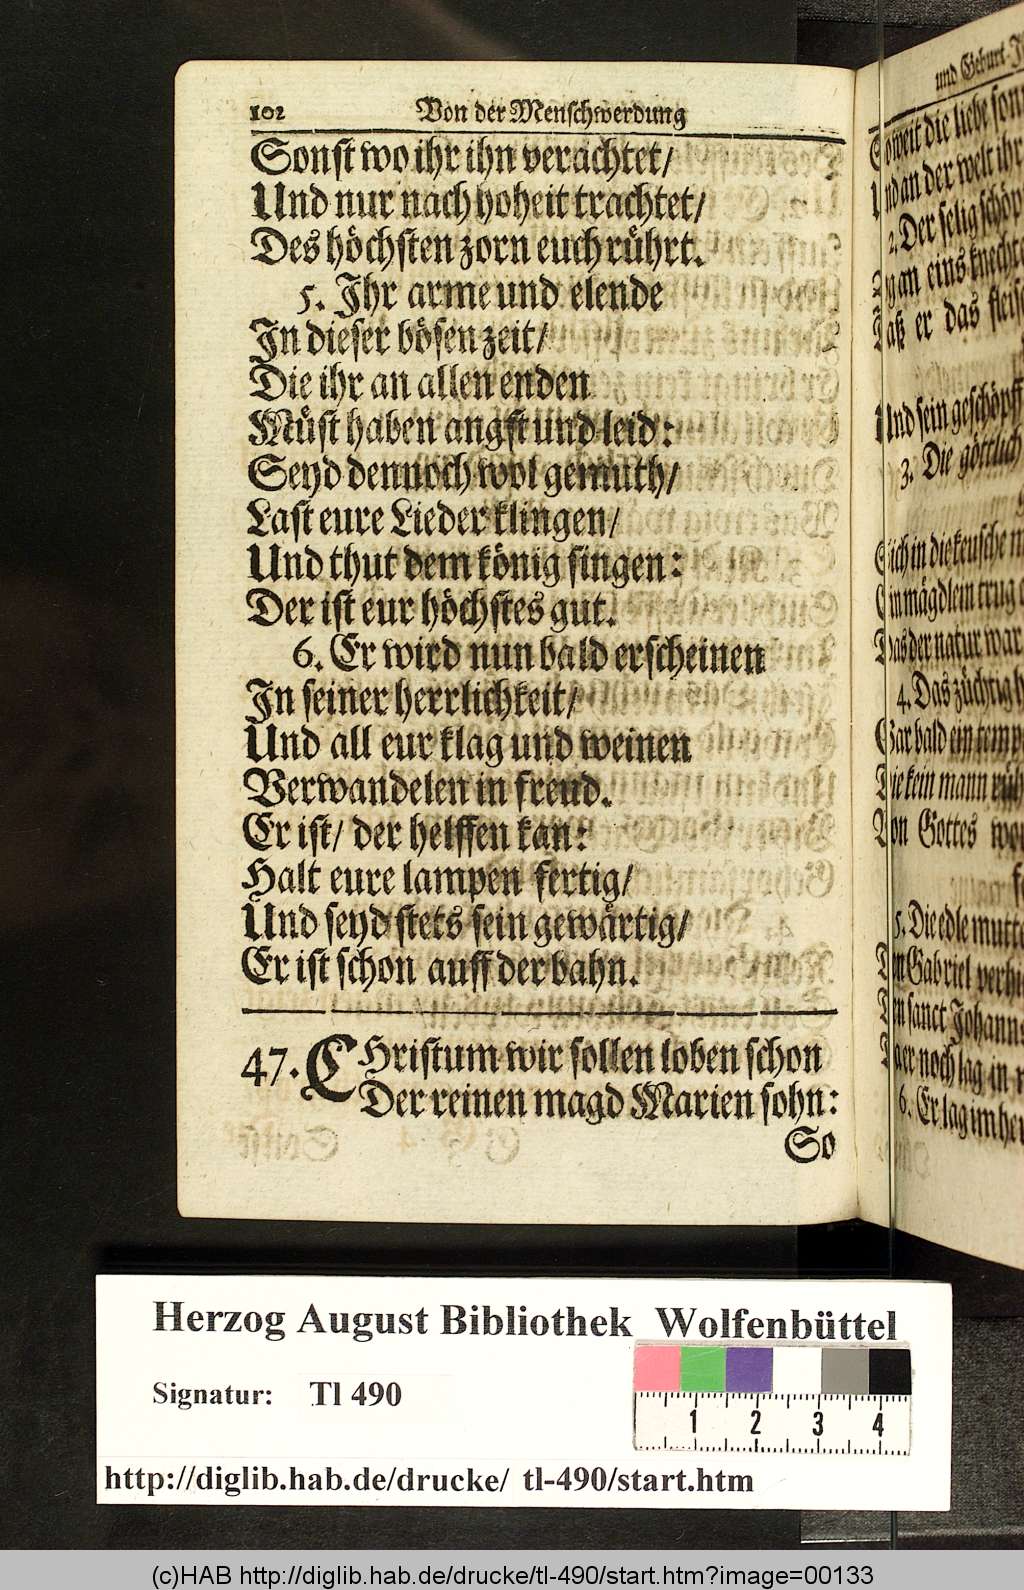 102 Von der Menschwerdung
Sonst wo ihr ihn verachtet/
Und nur nach hoheit trachtet/
Des höchsten zorn euch rührt.
5. Ihr arme und elende
In dieser bösen zeit/
Die ihr an allen enden
Müst haben angst und leid:
Seyd dennoch wol gemuth/
Last eure Lieder klingen/
Und thut dem könig singen:
Der ist eur höchstes gut.
6. Er wird nun bald erscheinen
In seiner herrlichkeit/
Und all eur klag und weinen
Verwandelen in freud.
Er ist/ der helffen kan:
Halt eure lampen fertig/
Und seyd stets sein gewärtig/
Er ist schon auff der bahn.
47. CHristum wir sollen loben schon
Der reinen magd Marien sohn:
So
und Geburt
die liebe
an der welt ihr
2. Der selig
an eins
er das
Und sein
3. Die göttlich
in die keusche
mägdlein trug
der natur war
4. Das züchtig
bald ein
kein mann
Gottes
5. Die edle
Gabriel
sanct
noch lag in
6. Er lag im
Herzog August Bibliothek Wolfenbüttel
Signatur: Tl 490
1 2 3 4
http://diglib.hab.de/drucke/ tl-490/start.htm
(c)HAB http://diglib.hab.de/drucke/tl-490/start.htm?image=00133